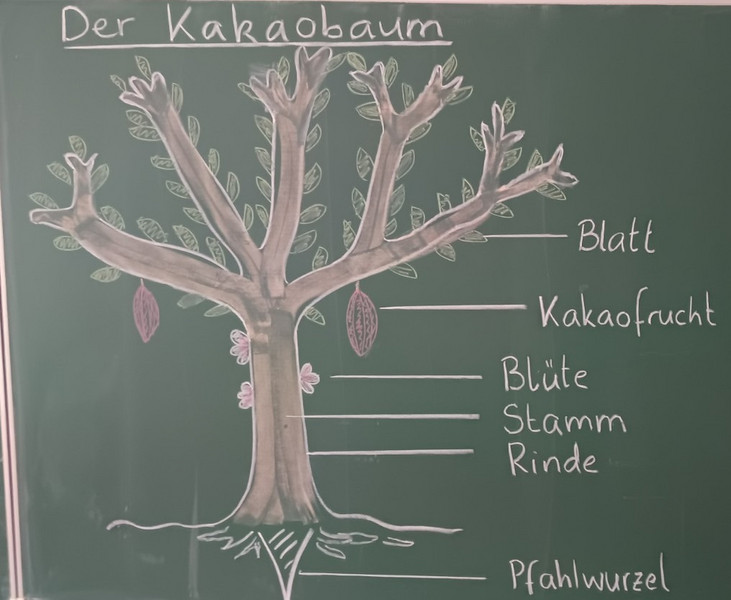 Der Kakaobaum
Blatt
Kakaofrucht
Blüte
Stamm
Rinde
Pfahlwurzel